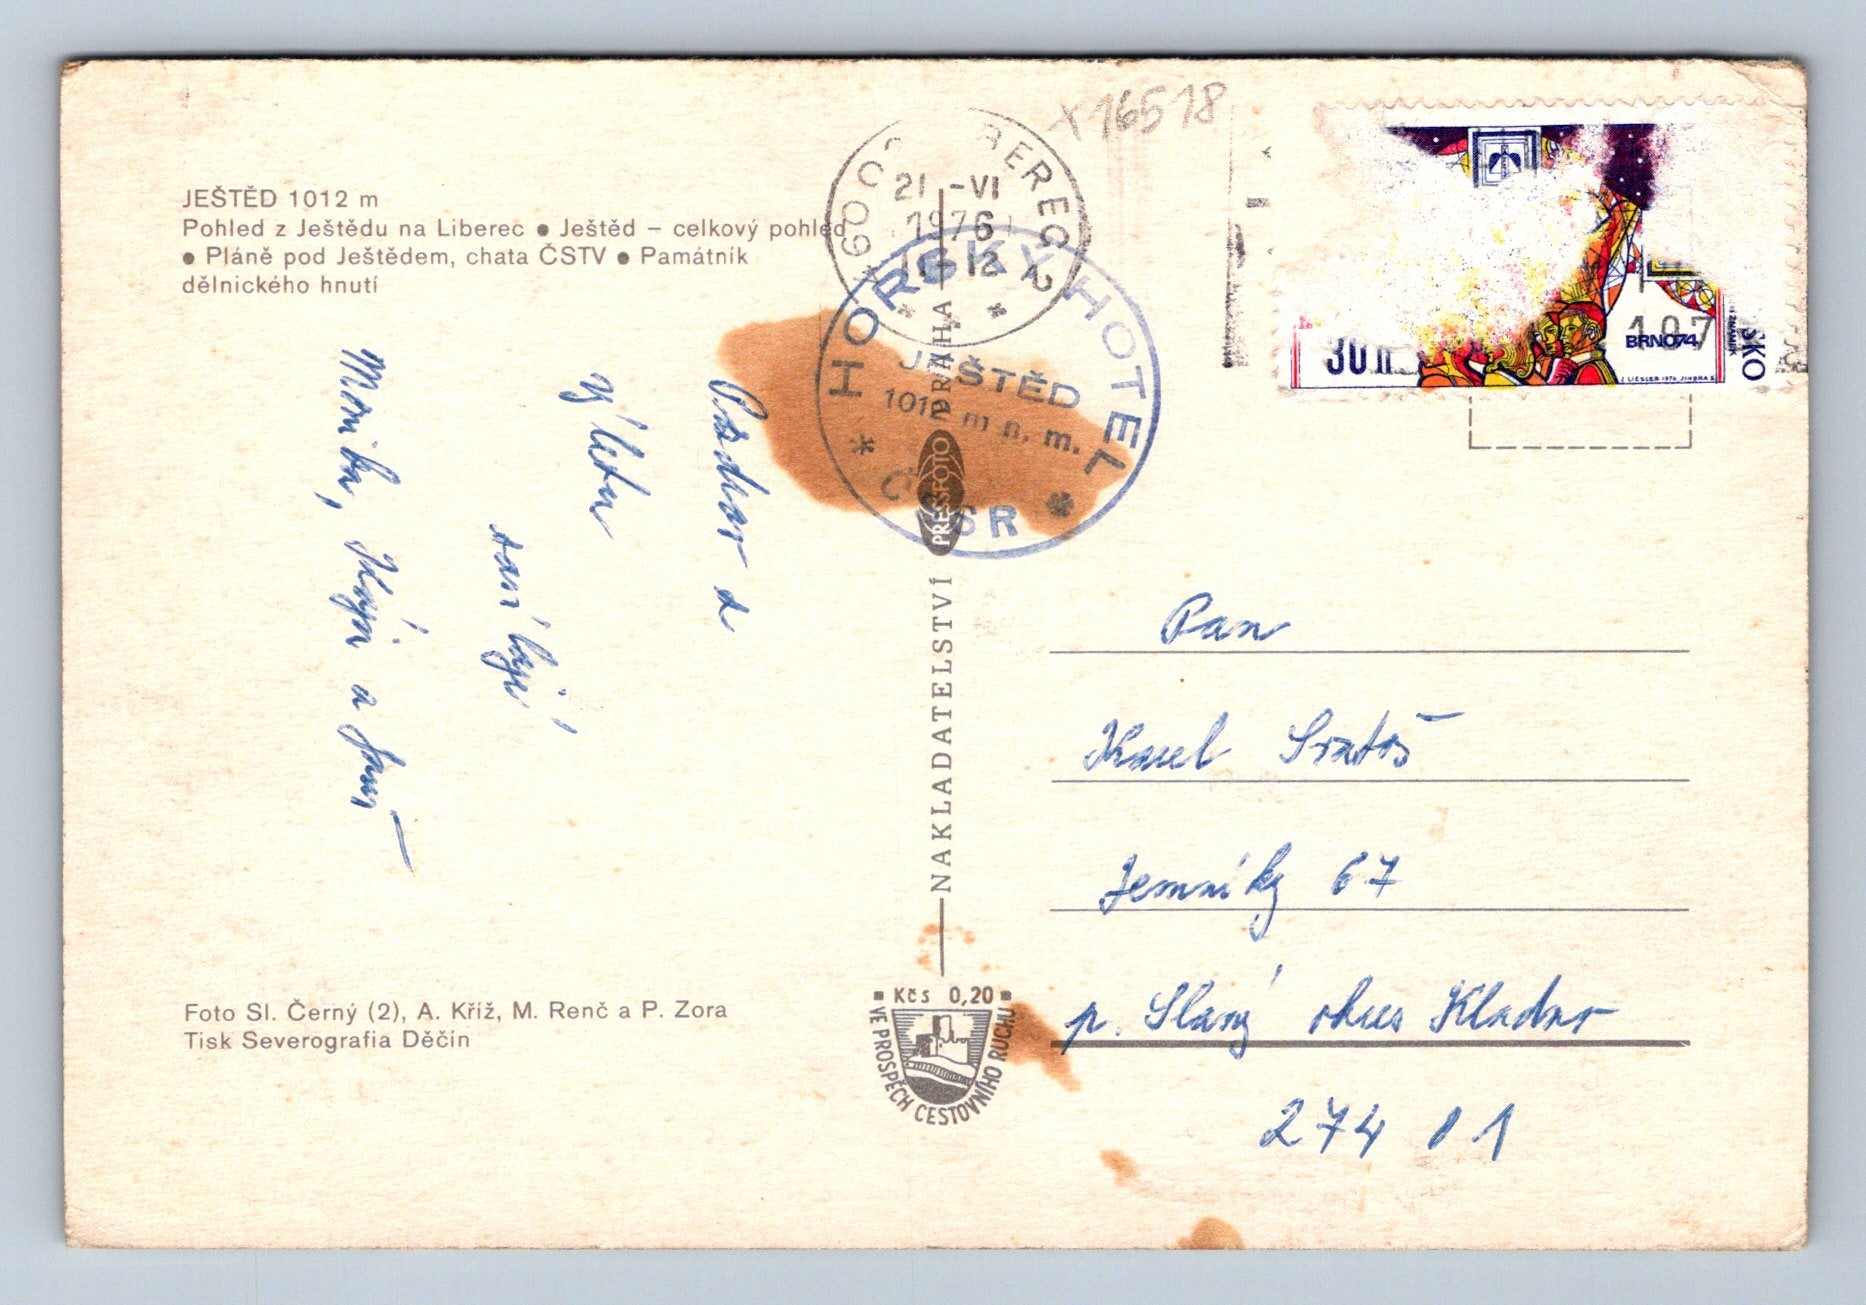 JEŠTĚD 1012 m
Pohled z Ještědu na Liberec ● Ještěd – celkový pohled
● Pláně pod Ještědem, chata ČSTV ● Památník
dělnického hnutí
Pozdrav z
výletu
Monika,
a
Foto Sl. Černý (2), A. Kříž, M. Renč a P. Zora
Tisk Severografia Děčín
NAKLADATELSTVÍ PRESSFOTO PRAHA
Kčs 0,20
VE PROSPĚCH CESTOVNÍHO RUCHU
LIBEREC 2
21 -VI
1976
HORSKÝ HOTEL
JEŠTĚD
1012 m n. m.
ČSSR
X16518
30 h
BRNO74
J. LIESLER 1974 JINDRA S.
Pan
Karel
Jemníky 67
p. Slaný okres Kladno
274 01